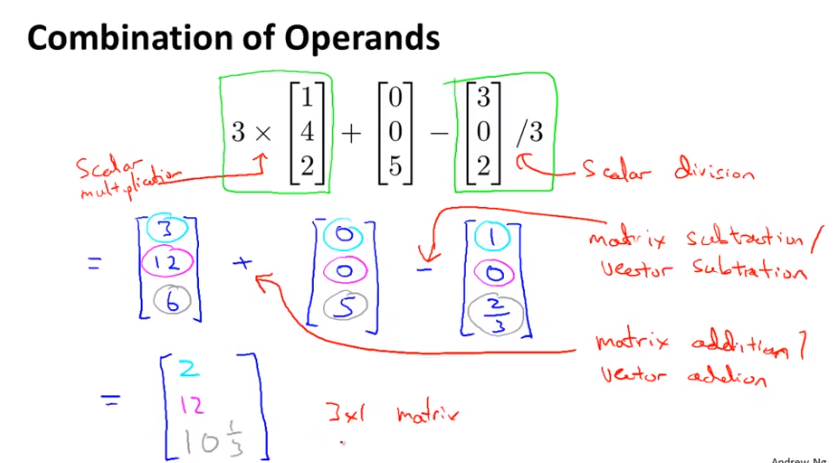 Combination of Operands
3 × [1 4 2] + [0 0 5] − [3 0 2] /3
Scalar
multiplication
Scalar division
= [3 12 6] + [0 0 5] - [1 0 2/3]
matrix subtraction /
vector subtration
matrix addition /
vector addion
= [2 12 10 1/3]
3x1 matrix
Andrew Ng